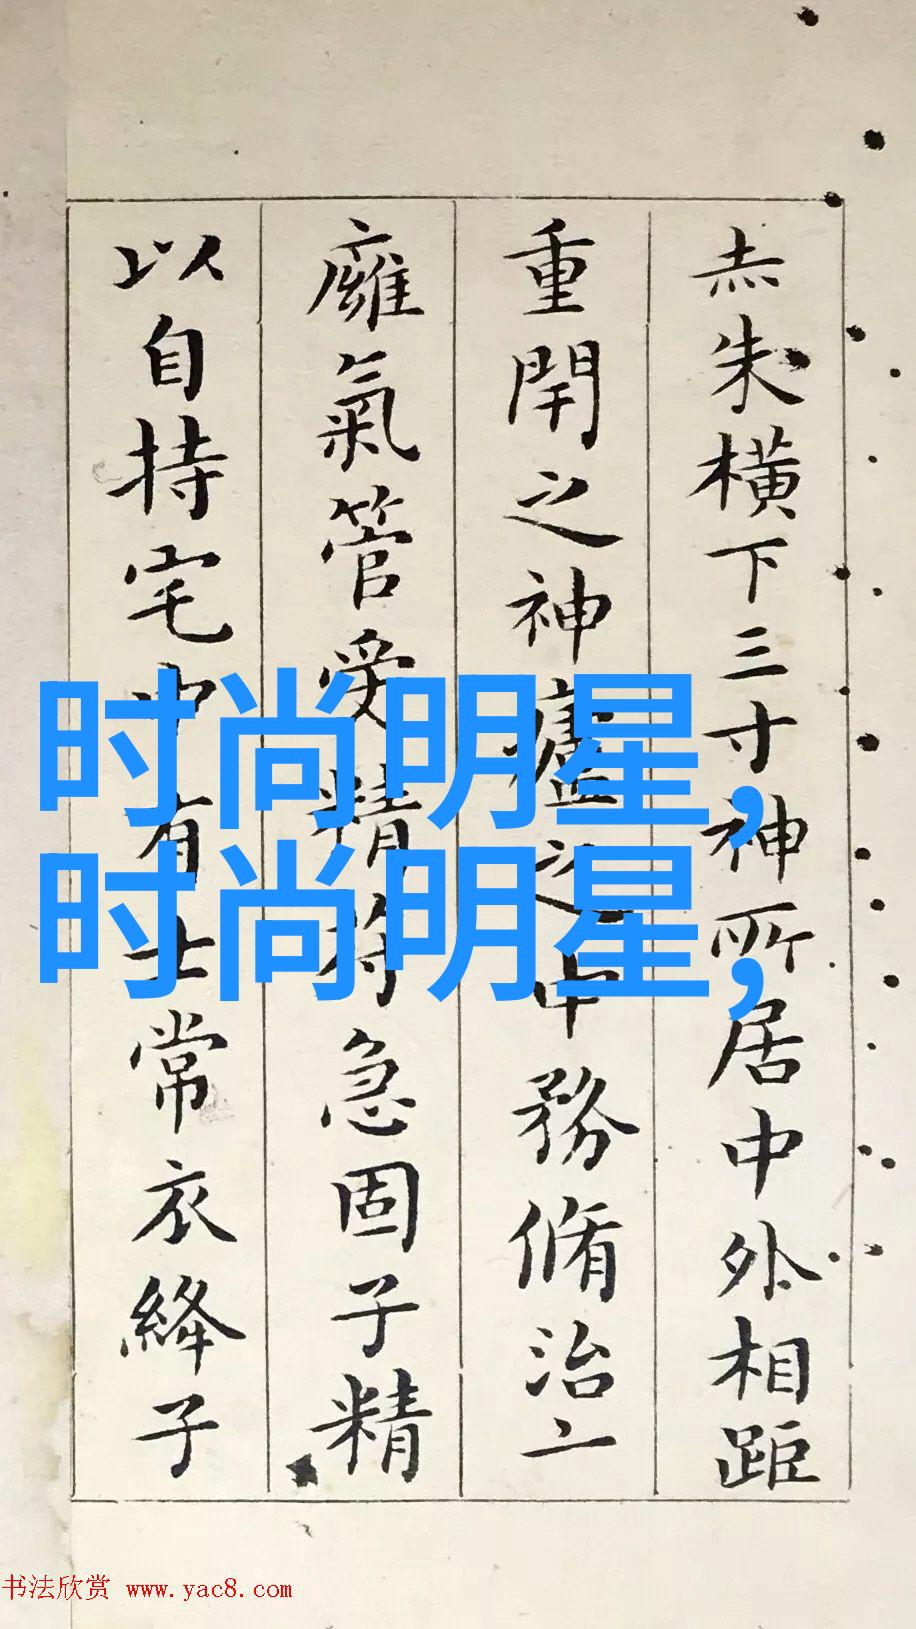 赤朱橫下三寸神所居中外相距
重閇之神廬之中務脩治
廱氣管受精符急固子精
以自持宅中有士常衣絳子
时尚明星,
时尚明星,
书法欣赏 www.yac8.com